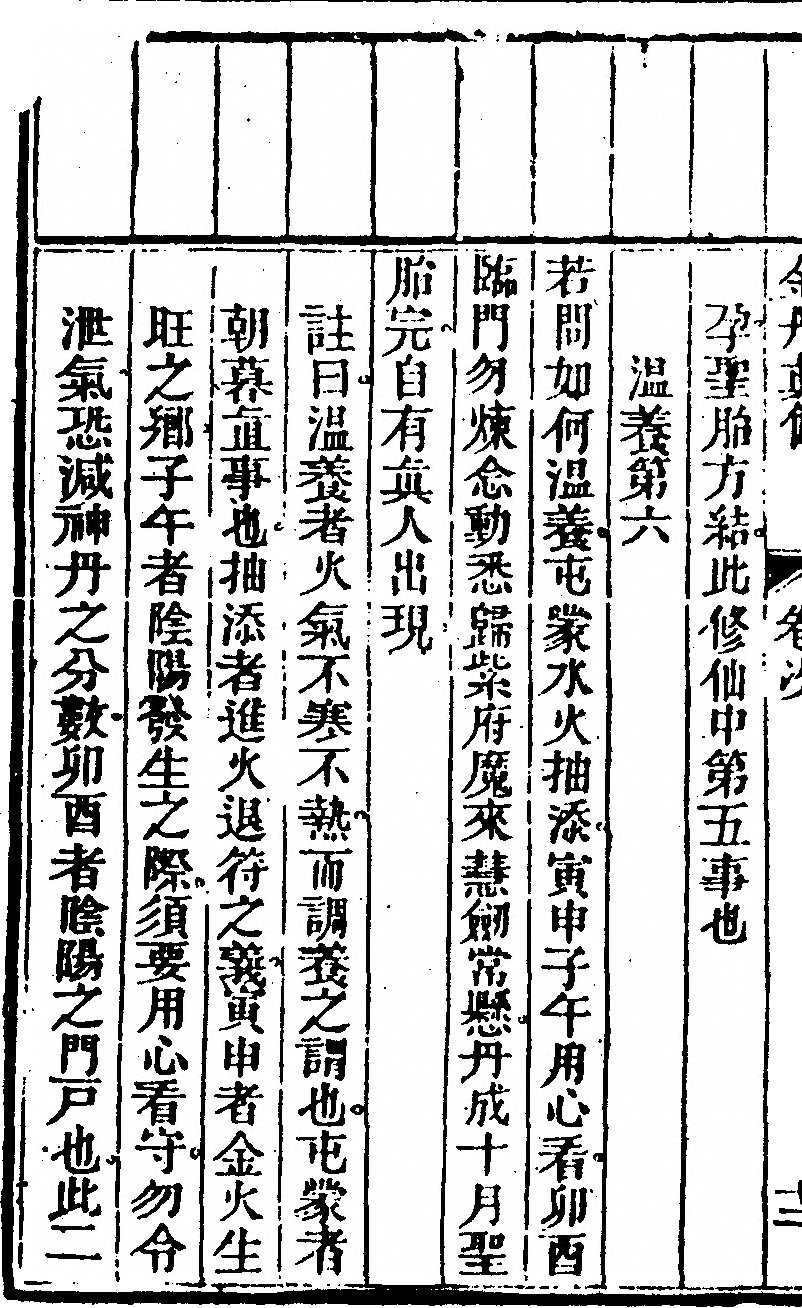 孕聖胎方結此修仙中第五事也
温養第六
若問如何温養屯蒙水火抽添寅申子午用心看卯酉
臨門勿煉念動悉歸紫府魔來慧劒常懸丹成十月聖
胎完自有眞人出現
註曰温養者火氣不寒不熱而調養之謂也屯蒙者
朝暮直事也抽添者進火退符之義寅申者金火生
旺之鄉子午者陰陽發生之際須要用心看守勿令
泄氣恐減神丹之分數卯酉者陰陽之門戸也此二